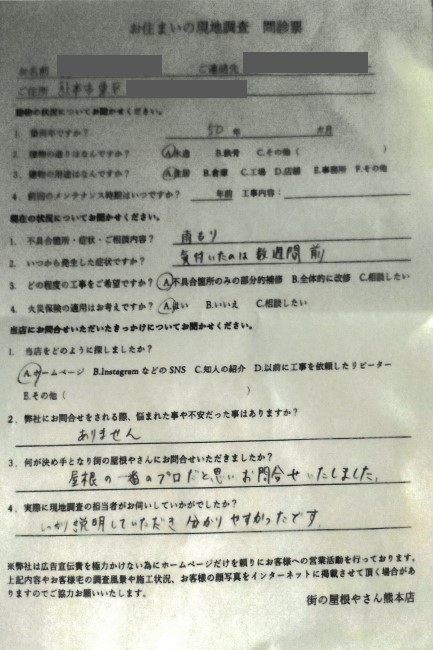 お住まいの現地調査 問診票
お名前 ご連絡先
ご住所
建物の状況についてお聞かせください。
1. 築何年ですか? 50 年 カ月
2. 建物の造りはなんですか? A.木造 B.鉄骨 C.その他( )
3. 建物の用途はなんですか? A.住居 B.倉庫 C.工場 D.店舗 E.事務所 F.その他
4. 前回のメンテナンス時期はいつですか? 年前 工事内容:
現在の状況についてお聞かせください。
1. 不具合箇所・症状・ご相談内容? 雨もり
2. いつから発生した症状ですか? 気付いたのは数週間前
3. どの程度の工事をご希望ですか? A.不具合箇所のみの部分的補修 B.全体的に改修 C.相談したい
4. 火災保険の適用はお考えですか? A.はい B.いいえ C.相談したい
当店にお問合せいただいたきっかけについてお聞かせください。
1. 当店をどのように探しましたか?
A.ホームページ B.InstagramなどのSNS C.知人の紹介 D.以前に工事を依頼したリピーター
E.その他( )
2. 弊社にお問合せをされる際、悩まれた事や不安だった事はありますか?
ありません
3. 何が決め手となり街の屋根やさんにお問合せいただきましたか?
屋根の一番のプロだと思いお問合せいたしました。
4. 実際に現地調査の担当者がお伺いしていかがでしたか?
しっかり説明していただき分かりやすかったです。
※弊社は広告宣伝費を極力かけない為にホームページだけを頼りにお客様への営業活動を行っております。
上記内容やお客様宅の調査風景や施工状況、お客様の顔写真をインターネットに掲載させて頂く場合があ
りますのでご協力お願いいたします。
街の屋根やさん熊本店